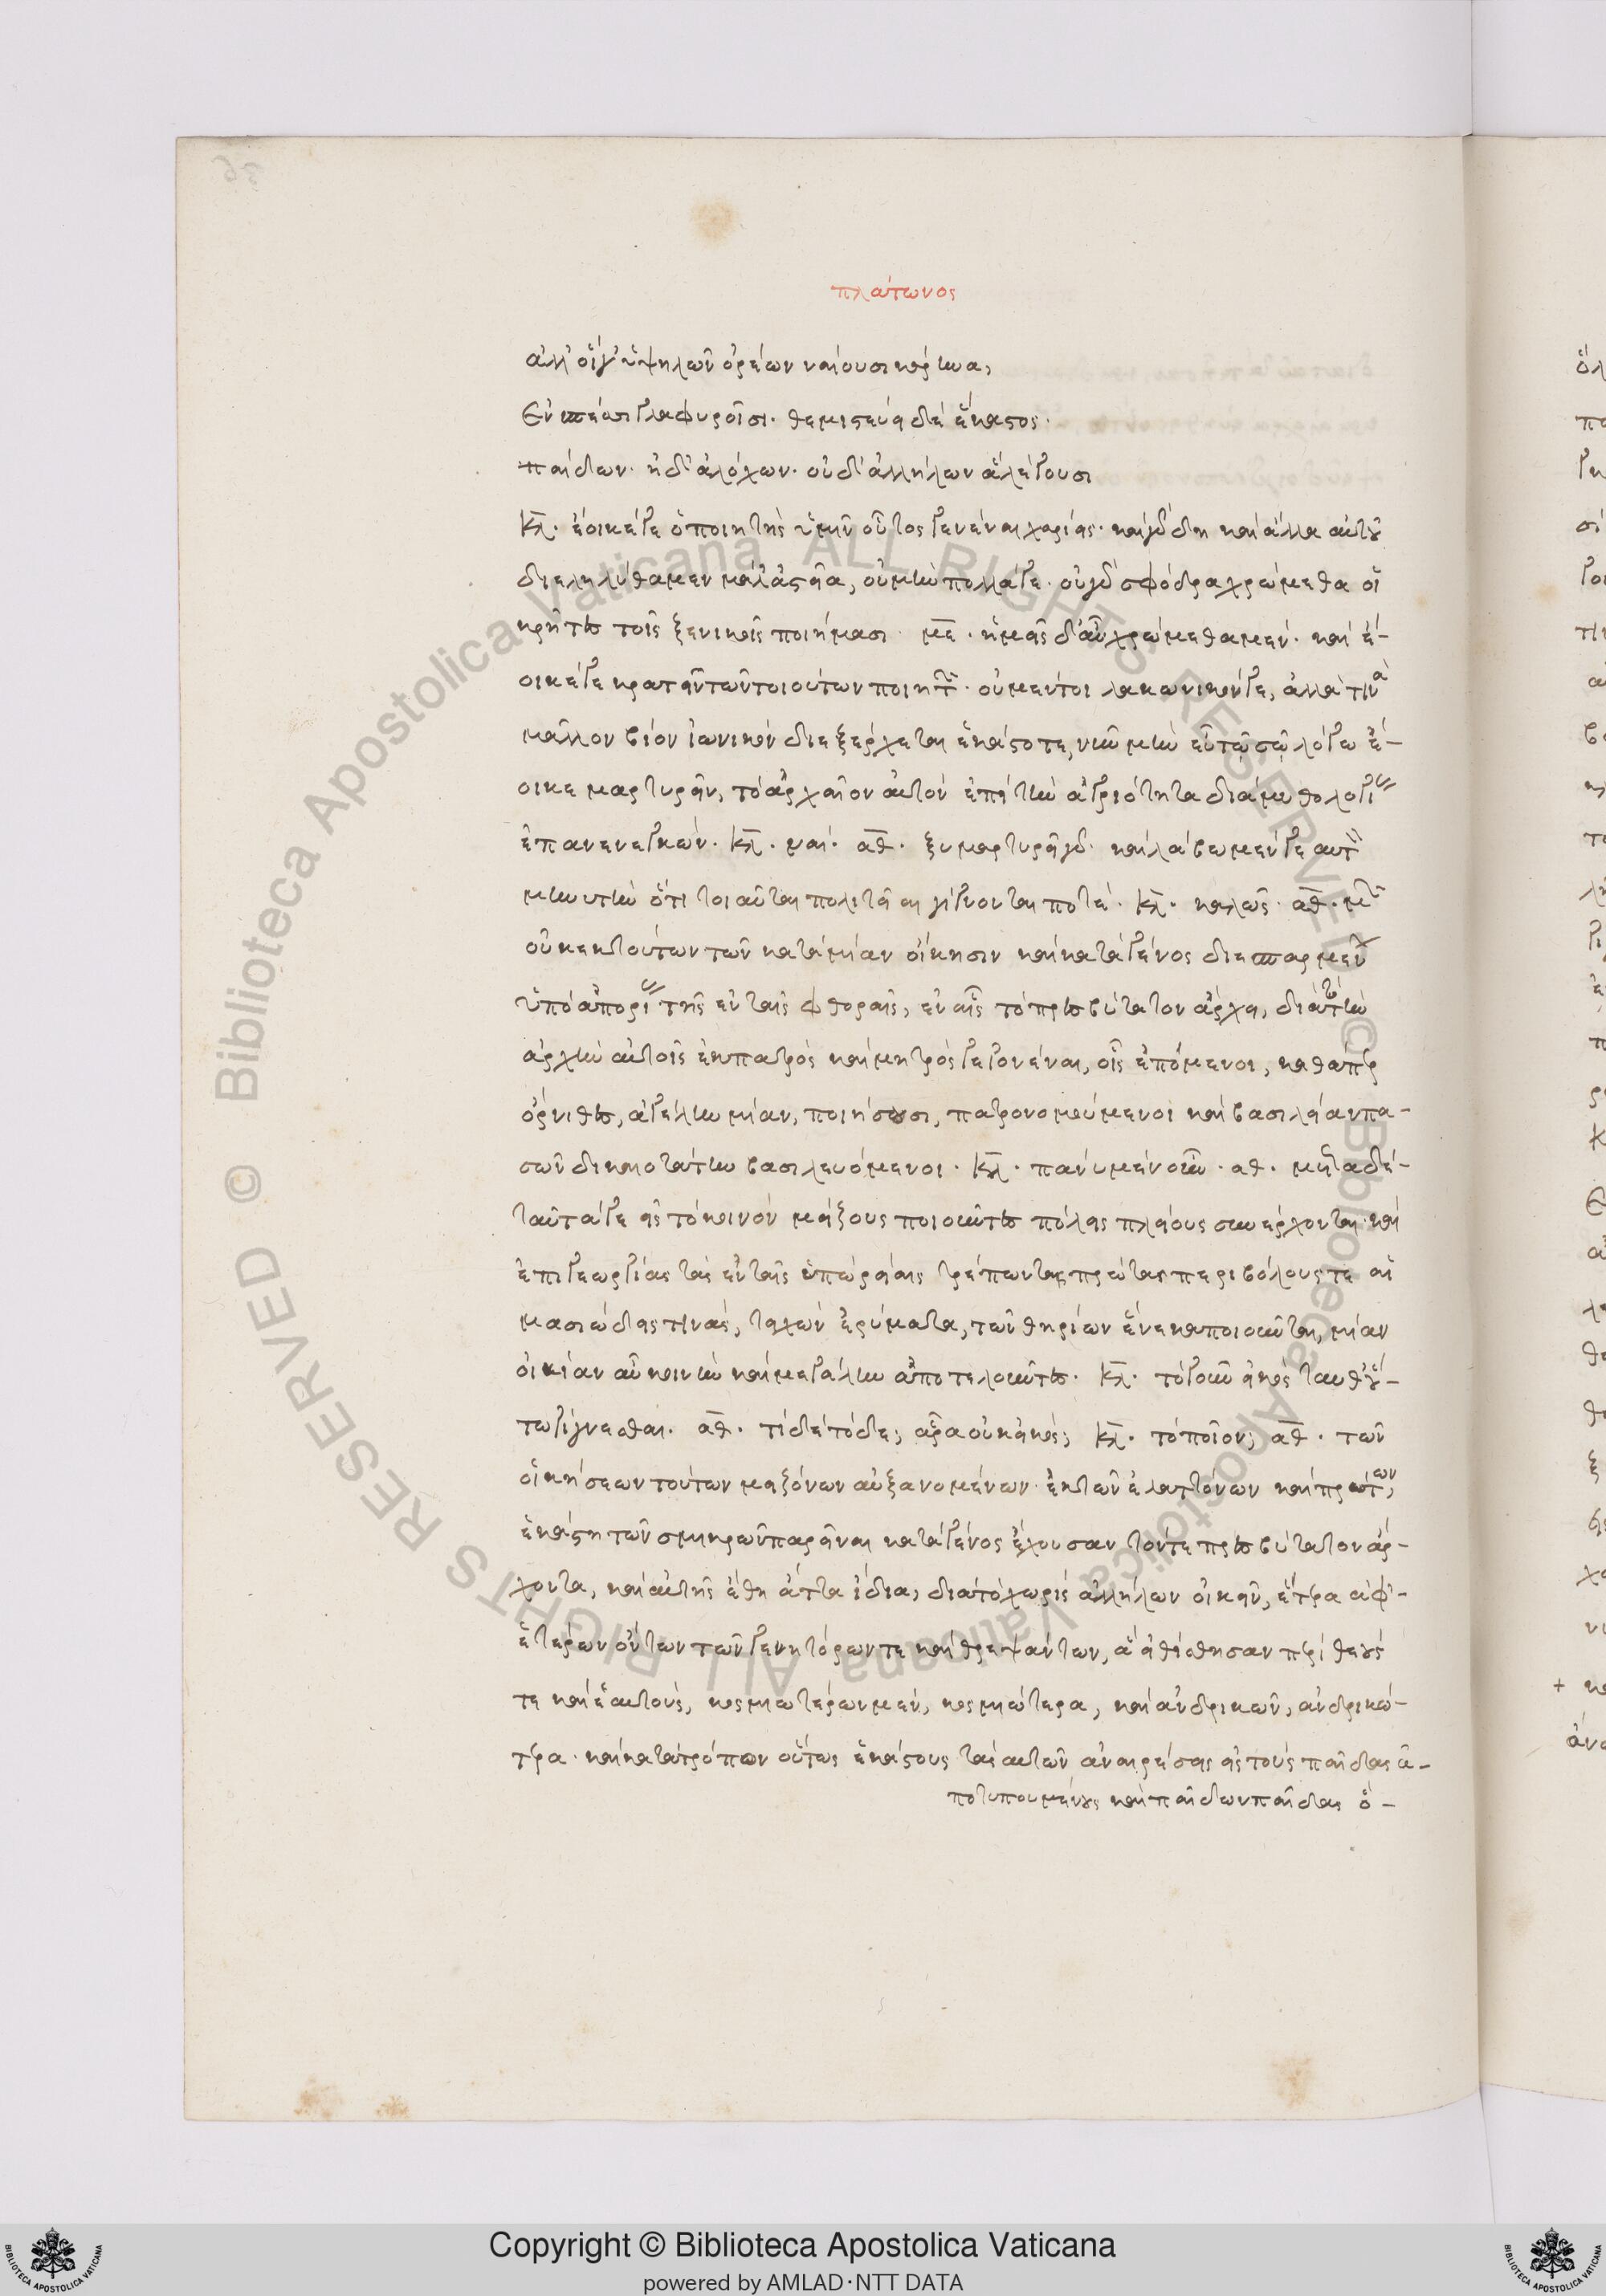 πλάτωνος
ἀλλ' οἵγ' ὑψηλῶν ὀρέων ναίουσι κάρηνα,
ἐν σπέσι γλαφυροῖσι· θεμιστεύει δὲ ἕκαστος·
παίδων· ἠδ' ἀλόχων· οὐδ' ἀλλήλων ἀλέγουσι
κλ. ἔοικέ γε ὁ ποιητὴς ὑμῖν οὗτος γενέναι χαρίεις· καὶ γὰρ δὴ καὶ ἄλλα αὐτοῦ
διεληλύθαμεν μάλ' ἀστεῖα, οὐ μὴν πολλά γε· οὐ γὰρ σφόδρα χρώμεθα οἱ
κρῆτες τοῖς ξενικοῖς ποιήμασι· με. ἡμεῖς δ' αὖ χρώμεθα μέν· καὶ ἔ-
οικέ γε κρατεῖν τῶν τοιούτων ποιητῶν· οὐ μέντοι λακωνικόν γε, ἀλλά τινα
μᾶλλον βίον ἰωνικὸν διεξέρχεται ἑκάστοτε, νῦν μὴν εὖ τῷ σῷ λόγῳ ἔ-
οικε μαρτυρεῖν, τὸ ἀρχαῖον αὐτὸν ἐπὶ τὴν ἀγριότητα διὰ μυθολογίας
ἐπανενεγκών. κλ. ναί. αθ. ξυμμαρτυρεῖ γάρ· καὶ λάβωμέν γε αὐτὸν
μηνυτὴν ὅτι τοιαῦται πολιτεῖαι γίγνονταί ποτέ. κλ. καλῶς. αθ. μῶν
οὐκ ἐκ τούτων τῶν κατὰ μίαν οἴκησιν καὶ κατὰ γένος διεσπαρμένων
ὑπὸ ἀπορίας τῆς ἐν ταῖς φθοραῖς, ἐν αἷς τὸ πρεσβύτατον ἄρχει, διὰ τὸ τὴν
ἀρχὴν αὐτοῖς ἐκ πατρὸς καὶ μητρὸς γεγονέναι, οἷς ἑπόμενοι, καθάπερ
ὄρνιθες, ἀγέλην μίαν, ποιήσουσι, πατρονομούμενοι καὶ βασιλείαν πα-
σῶν δικαιοτάτην βασιλευόμενοι. κλ. πάνυ μὲν οὖν. αθ. μετὰ δὲ-
ταῦτά γε εἰς τὸ κοινὸν μείζους ποιοῦντες πόλεις πλείους συνέρχονται· καὶ
ἐπὶ γεωργίας τὰς ἐν ταῖς ὑπωρείαις τρέπονται πρώτας περιβόλους τε αἱ
μασιώδεις τινάς, τειχῶν ἐρύματα, τῶν θηρίων ἕνεκα ποιοῦνται, μίαν
οἰκίαν αὖ κοινὴν καὶ μεγάλην ἀποτελοῦντες. κλ. τὸ γοῦν εἰκὸς ταῦθ' οὕ-
τω γίγνεσθαι. αθ. τί δὲ τόδε; ἆρα οὐκ εἰκός; κλ. τὸ ποῖον; αθ. τῶν
οἰκήσεων τούτων μειζόνων αὐξανομένων· ἐκ τῶν ἐλαττόνων καὶ πρώτων,
ἑκάστη τῶν σμικρῶν παρεῖναι κατὰ γένος ἔχουσαν τόν τε πρεσβύτατον ἄρ-
χοντα, καὶ αὐτῆς ἔθη ἄττα ἴδια, διὰ τὸ χωρὶς ἀλλήλων οἰκεῖν, ἕτερα ἀφ'-
ἑτέρων ὄντων τῶν γενητόρων τε καὶ θρεψάντων, ἃ εἰθίσθησαν περὶ θεούς
τε καὶ ἑαυτούς, κοσμιωτέρων μέν, κοσμιώτερα, καὶ ἀνδρικῶν, ἀνδρικώ-
τερα· καὶ κατὰ τρόπον οὕτως ἑκάστους τὰς αὐτῶν ἀναιρέσεις εἰς τοὺς παῖδας ἀ-
ποτυπουμένους καὶ παίδων παῖδας ὃ-